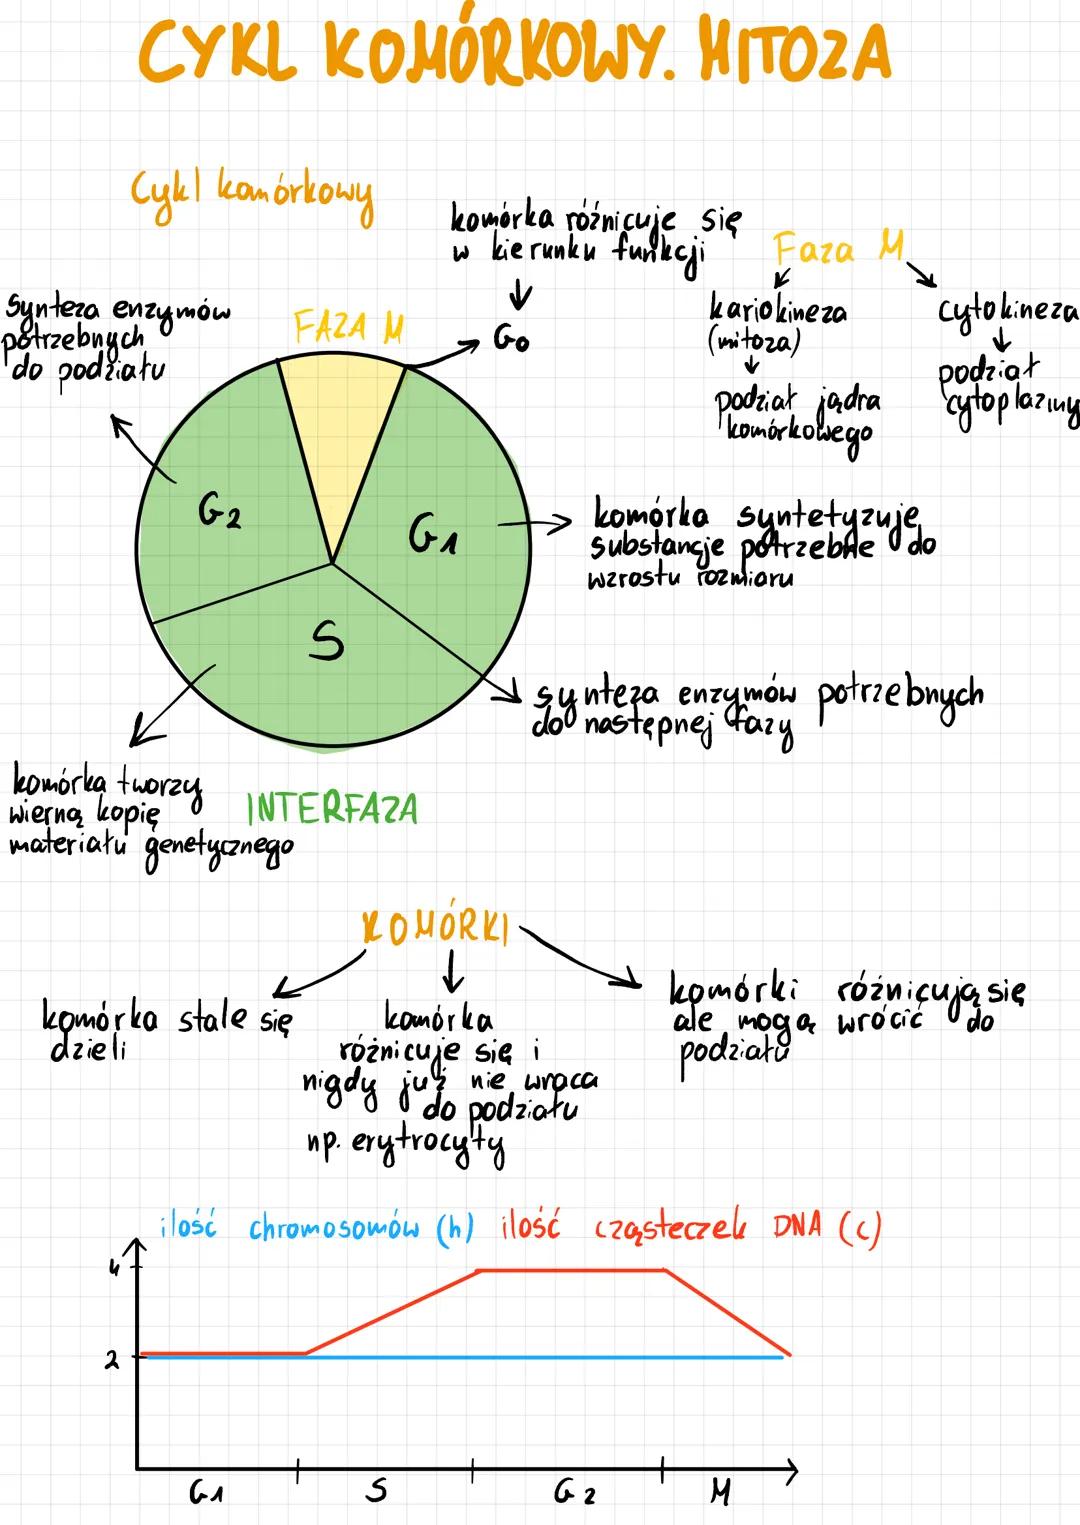 CYKL KOMÓRKOWY. MITOZA
Cykl komórkowy
komórka różnicuje się
w kierunku funkcji
G0
Faza M
kariokineza
(mitoza)
podział jądra
komórkowego
cytokineza
podział
cytoplazmy
Synteza enzymów
potrzebnych
do podziału
FAZA M
G2
G1
S
komórka syntetyzuje
substancje potrzebne do
wzrostu rozmiaru
synteza enzymów potrzebnych
do następnej fazy
komórka tworzy
wierną kopię
materiału genetycznego
INTERFAZA
KOMÓRKI
komórka stale się
dzieli
komórka
różnicuje się i
nigdy już nie wraca
do podziału
np. erytrocyty
komórki różnicują się
ale mogą wrócić do
podziału
ilość chromosomów (n) ilość cząsteczek DNA (c)
4
2
G1 S G2 M